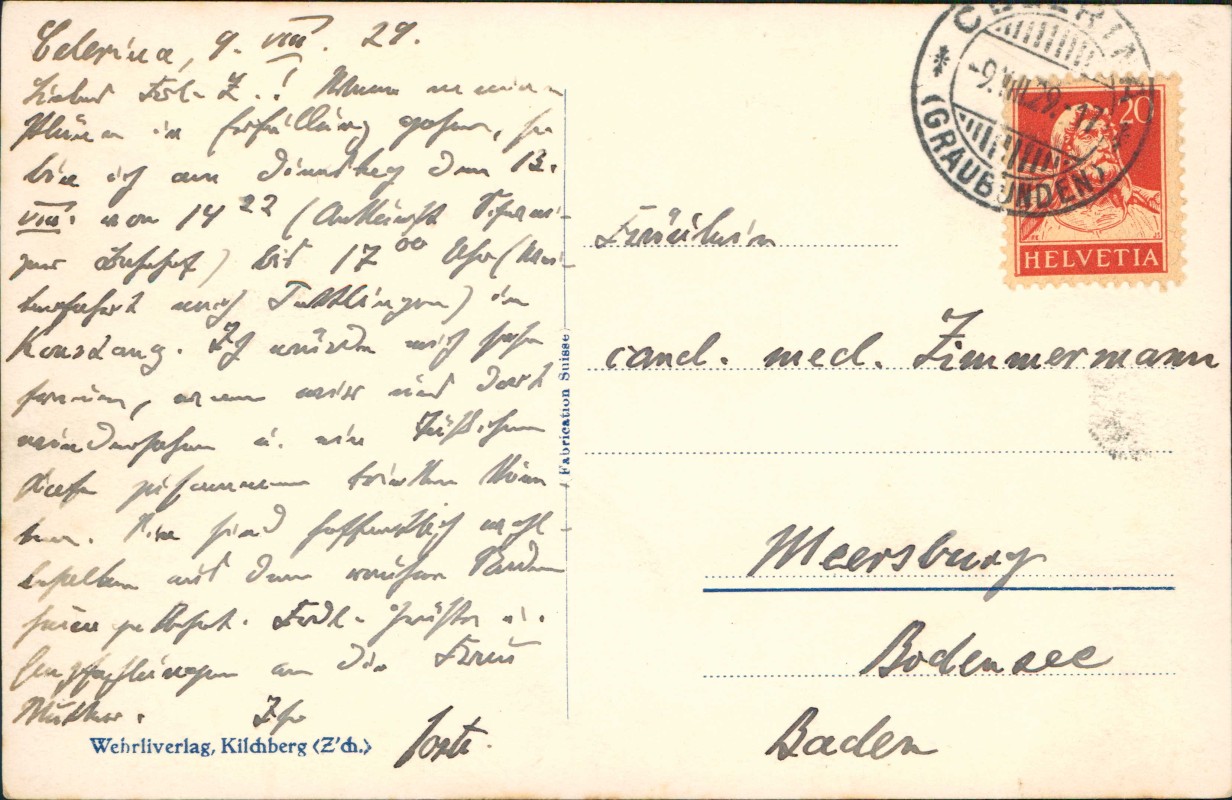 Celerina, 9. VIII. 29.
Liebes Frl. Z.! Wenn meine
Pläne in Erfüllung gehen, so
bin ich am Dienstag den 13.
VIII. von 14 22 (Ankunft
Bahnhof) bis 17 00 Uhr (Wei-
terfahrt nach Tuttlingen) in
Konstanz. Ich würde mich sehr
freuen, wenn wir uns dort
wiedersehen u. ein Täßchen
zusammen trinken kön-
nen. Sie sind hoffentlich wohl-
behalten aus dem
Frdl. Grüße u.
Empfehlungen an die Frau
Mutter. Ihr
Wehrliverlag, Kilchberg (Z'ch.)
Fabrication Suisse
CELERINA
-9.VIII.29.-17
(GRAUBÜNDEN)
20
HELVETIA
Fräulein
cand. med. Zimmermann
Meersburg
Bodensee
Baden